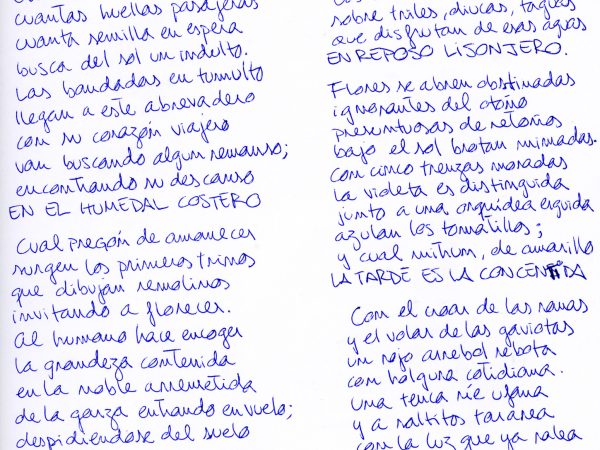 cuantas huellas pasajeras
cuanta semilla en espera
busca del sol un indulto.
Las bandadas en tumulto
llegan a este abrevadero
con su corazón viajero
van buscando algun remanso;
encontrando su descanso
EN EL HUMEDAL COSTERO
Cual pregón de amanecer
surgen los primeros trinos
que dibujan remolinos
invitando a florecer.
Al humano hace encoger
la grandeza contenida
en la noble arremetida
de la garza entrando en vuelo;
despidiéndose del suelo
sobre triles, diucas, taguas
que disfrutan de esas aguas
EN REPOSO LISONJERO.
Flores se abren obstinadas
ignorantes del otoño
presuntuosas de retoños
bajo el sol brotan mimadas.
con cinco trenzas moradas
la violeta es distinguida
junto a una orquídea erguida
azulan los tomatillos;
y cual mitium, de amarillo
LA TARDE ES LA CONCENTIDA
Con el croar de las ranas
y el volar de las gaviotas
un rojo arrebol rebota
con holgura cotidiana.
una tenca ríe ufana
y a saltitos tararea
con la luz que ya ralea